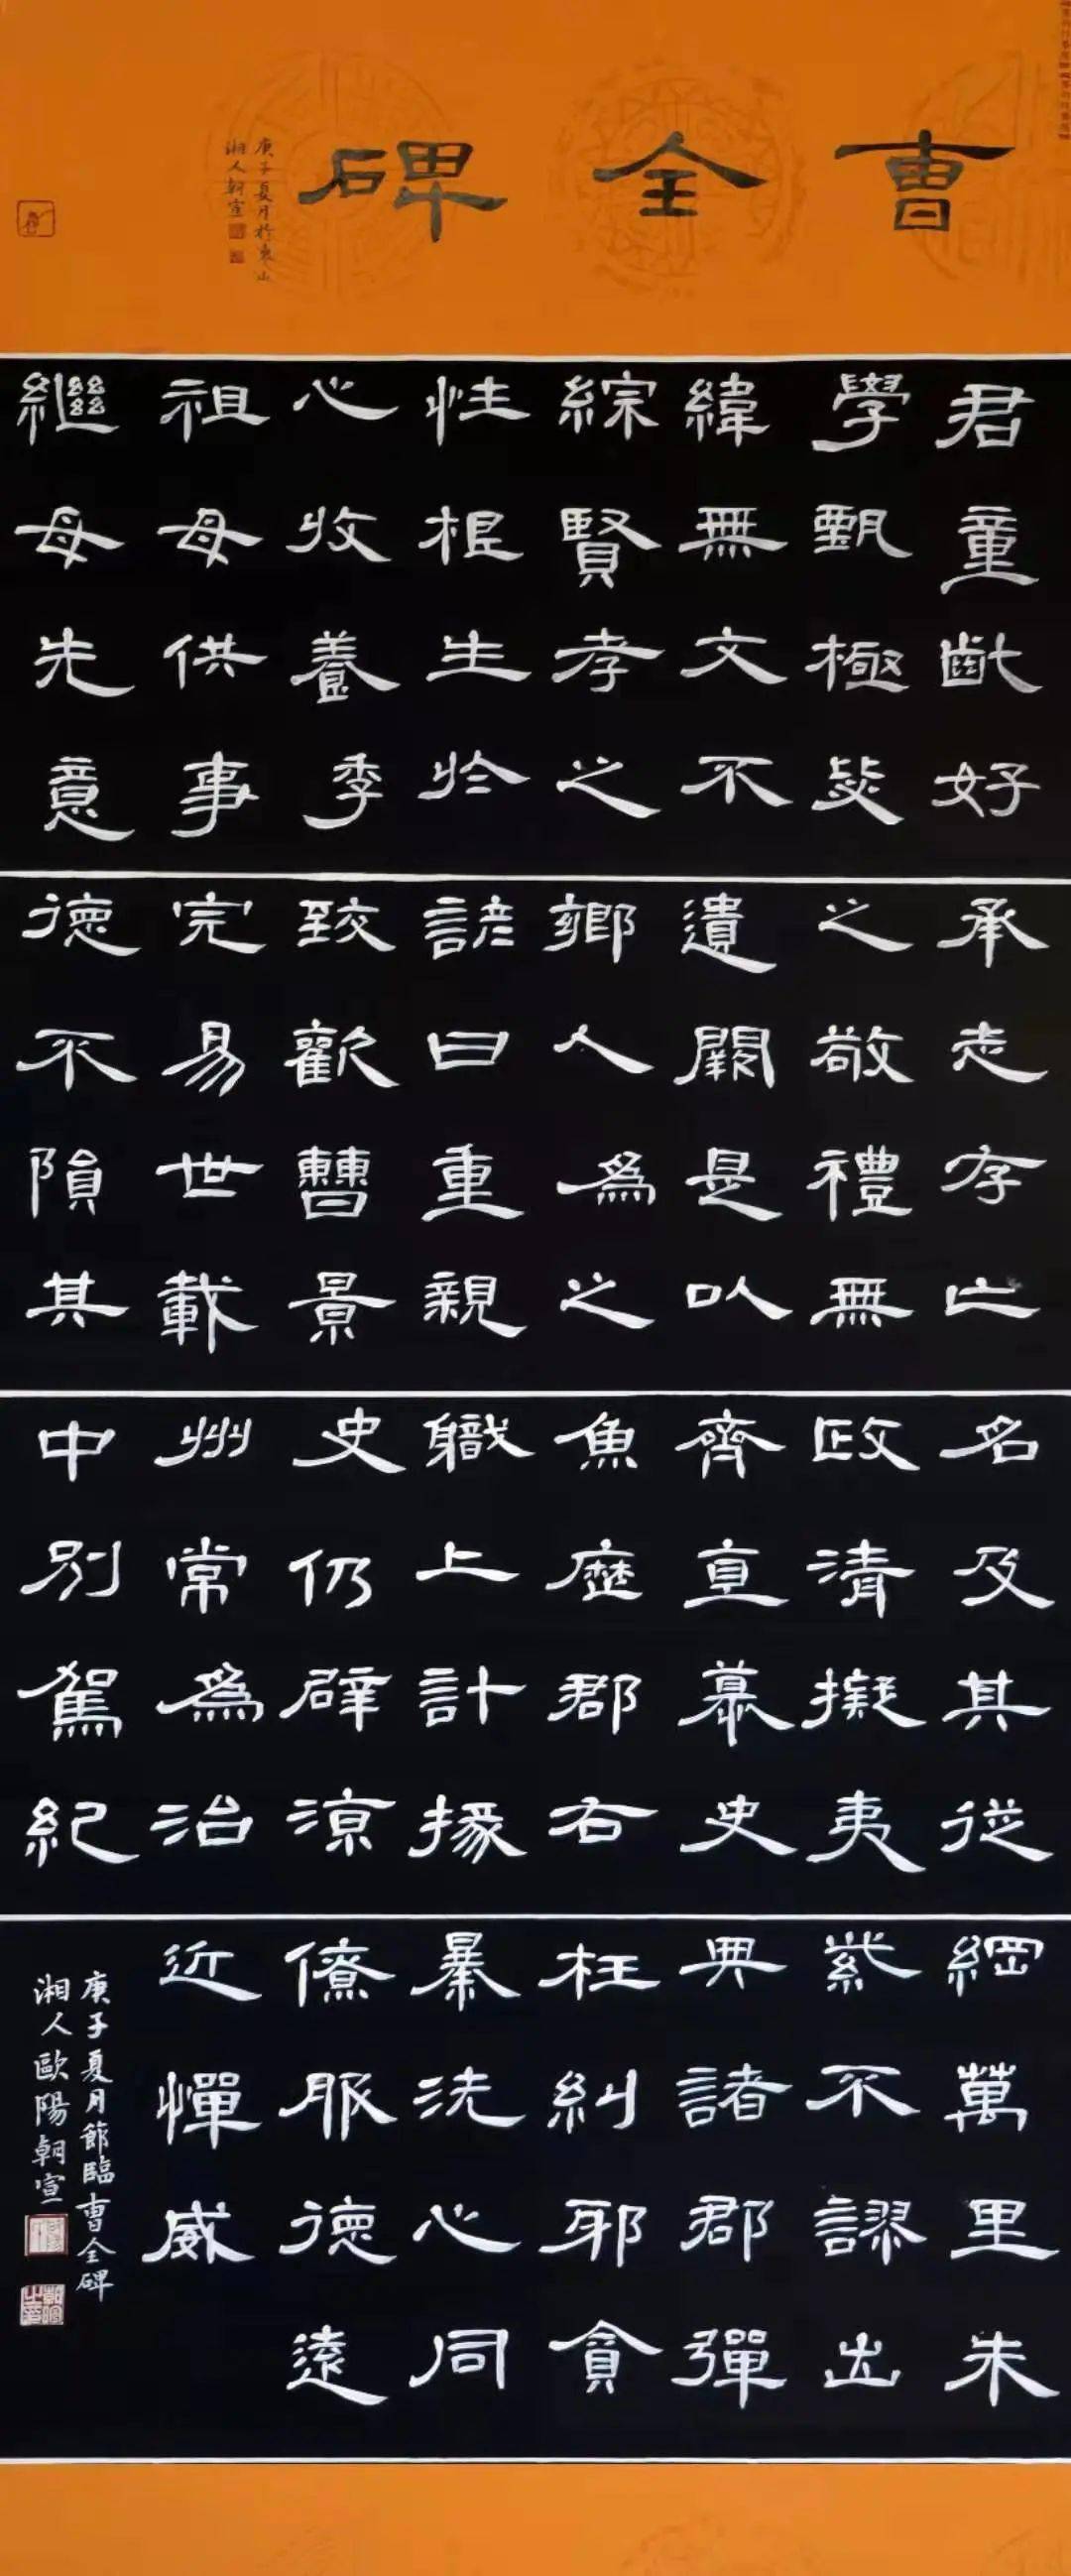 曺全碑
庚子夏月於東山
湘人朝宣
君童齔好
學甄極毖
緯無文不
綜賢孝之
性根生於
心收養季
祖母供事
繼母先意
承志存亡
之敬禮無
遺闕是以
鄉人為之
諺曰重親
致歡曹景
完易世載
德不隕其
名及其從
政清擬夷
齊直慕史
魚歷郡右
職上計掾
史仍辟涼
州常為治
中別駕紀
綱萬里朱
紫不謬出
典諸郡彈
枉糾邪貪
暴洗心同
僚服德遠
近憚威
庚子夏月節臨曺全碑
湘人歐陽朝宣